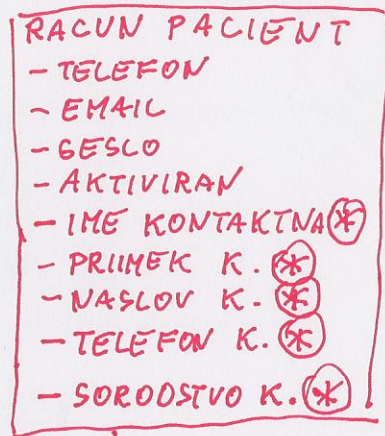 RACUN PACIENT
- TELEFON
- EMAIL
- GESLO
- AKTIVIRAN
- IME KONTAKTNA *
- PRIIMEK K. *
- NASLOV K. *
- TELEFON K. *
- SORODSTVO K. *